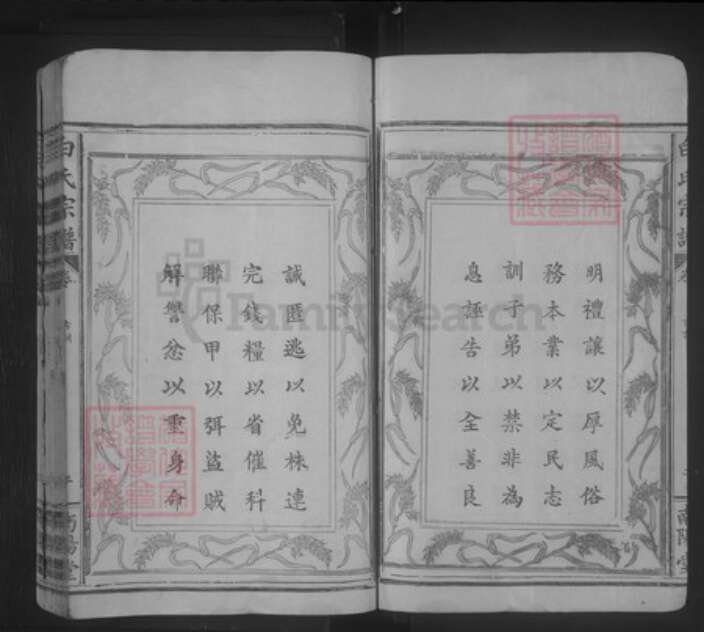 明禮讓以厚風俗
務本業以定民志
訓子弟以禁非為
息誣告以全善良
誡匿逃以免株連
完錢糧以省催科
聯保甲以弭盜賊
解讐忿以重身命
白氏宗譜
卷
南陽堂
白氏宗譜
卷
南陽堂
FamilySearch